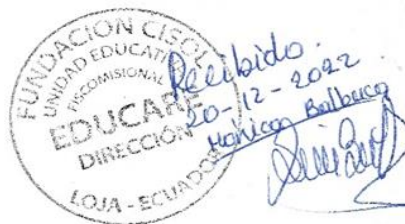 FUNDACIÓN CISOL
UNIDAD EDUCATIVA
FISCOMISIONAL
EDUCARE
DIRECCIÓN
LOJA - ECUADOR
Recibido.
20-12-2022
Mónica Balbuca